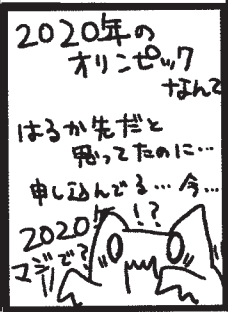 2020年の
オリンピック
なんて
はるか先だと
思ってたのに…
申し込んでる…今…
2020!
!?
マジで?